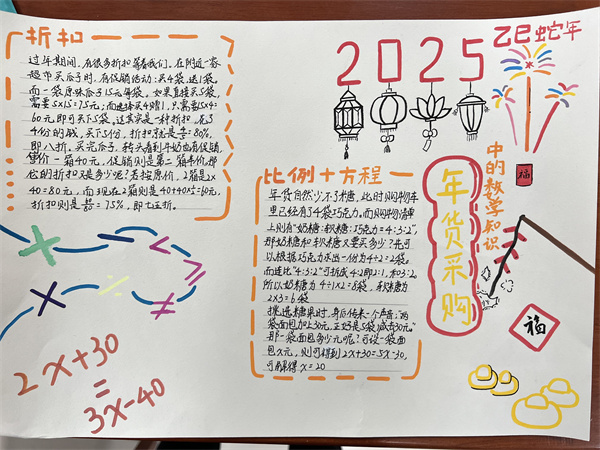 折扣
过年期间,有很多折扣等着我们。在附近一家
超市买瓜子时,有促销活动:买4袋,送1袋。
而一袋原味瓜子15元每袋。如果直接买5袋,
需要5×15=75元;而选择买4赠1,只需要15×4=
60元,即可买下5袋。这其实是一种折扣,花了
4份的钱,买下5份,折扣就是 =80%,
即八折。买完瓜子,转头看到牛奶也有促销,
售价一箱40元,促销则是第二箱半价,那
它的折扣又是多少呢?若按原价,2箱是2×
40=80元,而现在2箱则是40+40×
折扣则是60/80=75%,即七五折。
2x+30
=
3x-40
2025
乙巳蛇年
福
比例+方程
年货自然少不了糖,此时购物车
里已经有了4袋巧克力。而购物清单
上则有“奶糖:软糖:巧克力=4:3:2”,
那奶糖和软糖又要买多少?先可
以根据巧克力求出一份为4÷2=2袋。
而连比“4:3:2”可拆成4:2即2:1,和3:2,
所以奶糖为4÷1×2=8袋,软糖为
2×3=6袋
挑选糖果时,身后传来一个声音:“两
袋面包加上30元,正好是5袋减去30元。”
那一袋面包多少元呢?可设一袋面
包x元,则可得到2x+30=5x-30,
可解得x=20
年货采购
中的数学知识
福